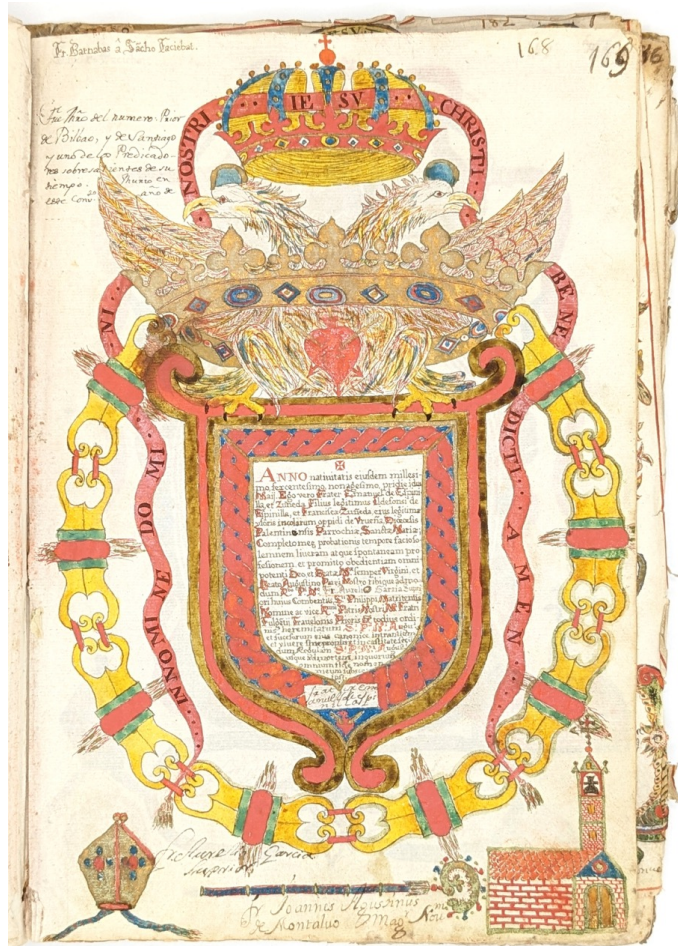 Fr. Barnabas â, Sācho Faciebat.
168
169
fue Mrō del numero. Prior
de Bilbao, y de Santiago
y uno de los Predicado-
res sobresalientes de su
tiempo. Murio en
este Conv. año de
IN NOMINE DOMI NI NOSTRI IESV CHRISTI BENE DICTI AMEN
ANNO nativitatis eiusdem millesi-
mo, sexcentesimo, nonagesimo, pridie idus
Maij. Ego vero Frater Emanuel de Espini-
lla, et Zisneda, Filius legitimus Ildefonsi de
Espinilla, et Franciscæ Zisneda, eius legitimæ
uxoris incolarum oppidi de Vrueña, Diœcedis
Palentinensis Parrochiæ, Sanctæ Mariæ;
Completo meæ probationis tempore facio so-
lemnem liveram atque spontaneam pro
fesionem, et promitto obedientiam omni
potenti Deo et Beatæ Mæ semper Virgini, et
Beato Augustino Patri Nostro tibique
Rmo P. Mo Fr. Aurelio Garzia Supri-
ori huius Combentus Sti Philippi Matritensis
Nomine ac vice Rmi Patris Nostri Mi Fratris
Fulgentii Travalloni Prioris Gralis totius ordi-
nis heremitarum S. P. N. A.
et succesorum eius canonice intrantium
et vivere sine proprio et in castitate
secundum Regulam
usque ad mortem in quorum
omnium fide
Fr. Aurelio Garcia
Suprior
Fr. Joannis Agustinus
de Montalvo Magr Nou